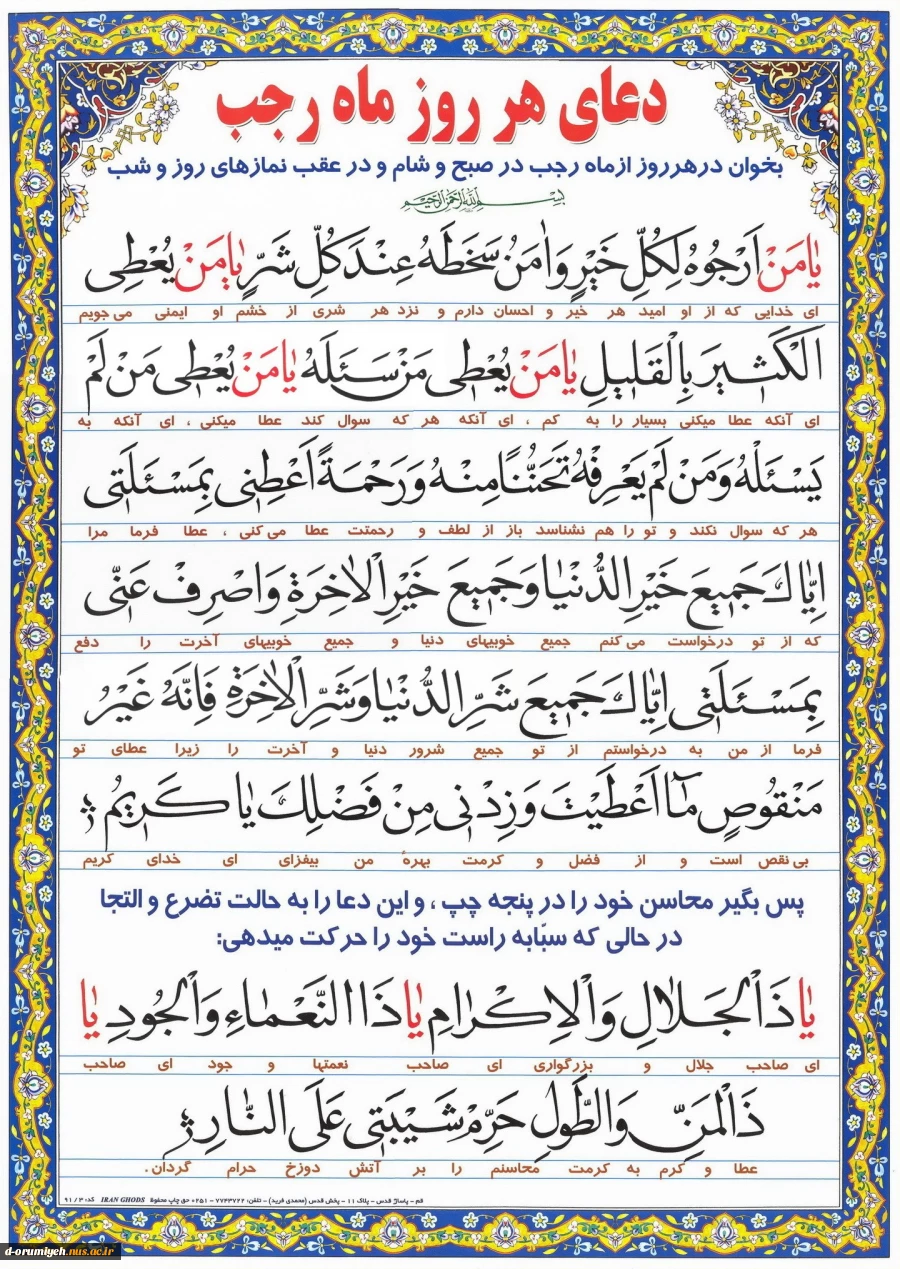 دعای هر روز ماه رجب
بخوان در هر روز از ماه رجب در صبح و شام و در عقب نمازهای روز و شب
بسم الله الرحمن الرحیم
یٰا مَنْ اَرْجُوهُ لِکُلِّ خَیْرٍ وَاٰمَنُ سَخَطَهُ عِنْدَ کُلِّ شَرٍّ یٰا مَنْ یُعْطِی
ای خدایی که از او امید هر خیر و احسان دارم و نزد هر شری از خشم او ایمنی می جویم
الْکَثیرَ بِالْقَلیلِ یٰا مَنْ یُعْطی مَنْ سَئَلَهُ یٰا مَنْ یُعْطی مَنْ لَمْ
ای آنکه عطا میکنی بسیار را به کم ، ای آنکه هر که سوال کند عطا میکنی ، ای آنکه به
یَسْئَلْهُ وَمَنْ لَمْ یَعْرِفْهُ تَحَنُّنًا مِنْهُ وَرَحْمَةً اَعْطِنی بِمَسْئَلَتی
هر که سوال نکند و تو را هم نشناسد باز از لطف و رحمتت عطا می کنی ، عطا فرما مرا
اِیّٰاکَ جَمیعَ خَیْرِ الدُّنْیٰا وَجَمیعَ خَیْرِ الْاٰخِرَةِ وَاصْرِفْ عَنّی
که از تو درخواست می کنم جمیع خوبیهای دنیا و جمیع خوبیهای آخرت را دفع
بِمَسْئَلَتی اِیّٰاکَ جَمیعَ شَرِّ الدُّنْیٰا وَشَرِّ الْاٰخِرَةِ فَاِنَّهُ غَیْرُ
فرما از من به درخواستم از تو جمیع شرور دنیا و آخرت را زیرا عطای تو
مَنْقُوصٍ مٰا اَعْطَیْتَ وَزِدْنی مِنْ فَضْلِکَ یٰا کَریمُ
بی نقص است و از فضل و کرمت بهرهٔ من بیفزای ای خدای کریم
پس بگیر محاسن خود را در پنجه چپ ، و این دعا را به حالت تضرع و التجا
در حالی که سبّابه راست خود را حرکت میدهی:
یٰا ذَا الْجَلٰالِ وَالْاِکْرٰامِ یٰا ذَا النَّعْمٰاءِ وَالْجُودِ یٰا
ای صاحب جلال و بزرگواری ای صاحب نعمتها و جود ای صاحب
ذَا الْمَنِّ وَالطَّوْلِ حَرِّمْ شَیْبَتی عَلَی النّٰارِ
عطا و کرم به کرمت محاسنم را بر آتش دوزخ حرام گردان.
قم - پاساژ قدس - پلاک ۱۱ - پخش قدس (محمدی فرید) - تلفن: ۷۷۴۳۷۲۲ - ۰۲۵۱ حق چاپ محفوظ IRAN GHODS کد: ۳ / ۹۱
d-orumiyeh.nus.ac.ir